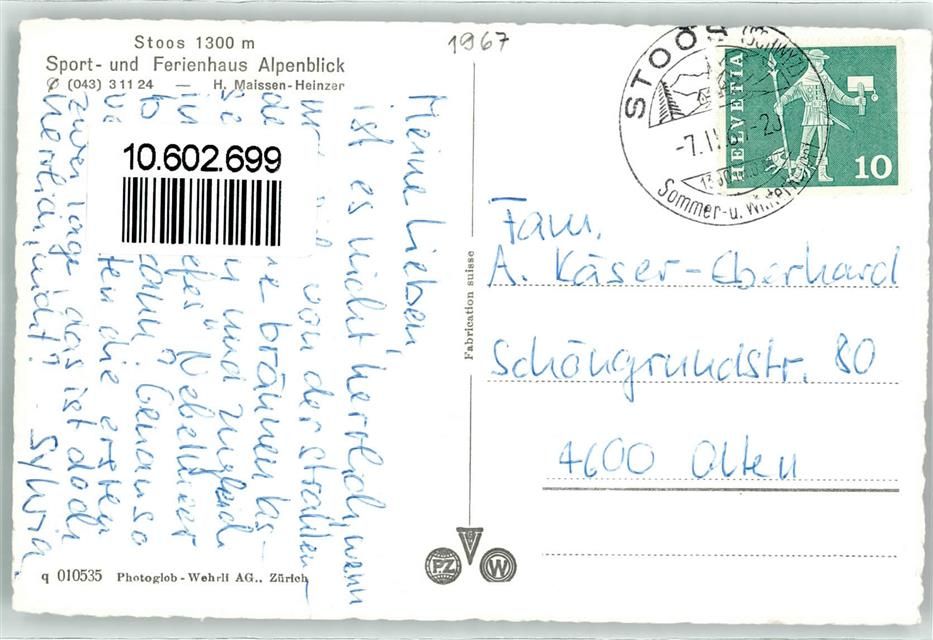 Stoos 1300 m
Sport- und Ferienhaus Alpenblick
(043) 3 11 24 H. Maissen-Heinzer
1967
STOOS (SCHWYZ)
Sommer- u.
HELVETIA
10
10.602.699
Meine Lieben,
ist es nicht herrlich, wenn
von der strahlen-
bräunen las-
und zugleich
Nebelmeer
kann? Genauso
die ersten
zwei Tage, das ist doch
herrlich, nicht?
Sylvia
Fabrication suisse
Fam.
A. Käser-Eberhard
Schöngrundstr. 80
4600 Olten
PZ
W
q 010535 Photoglob-Wehrli AG., Zürich